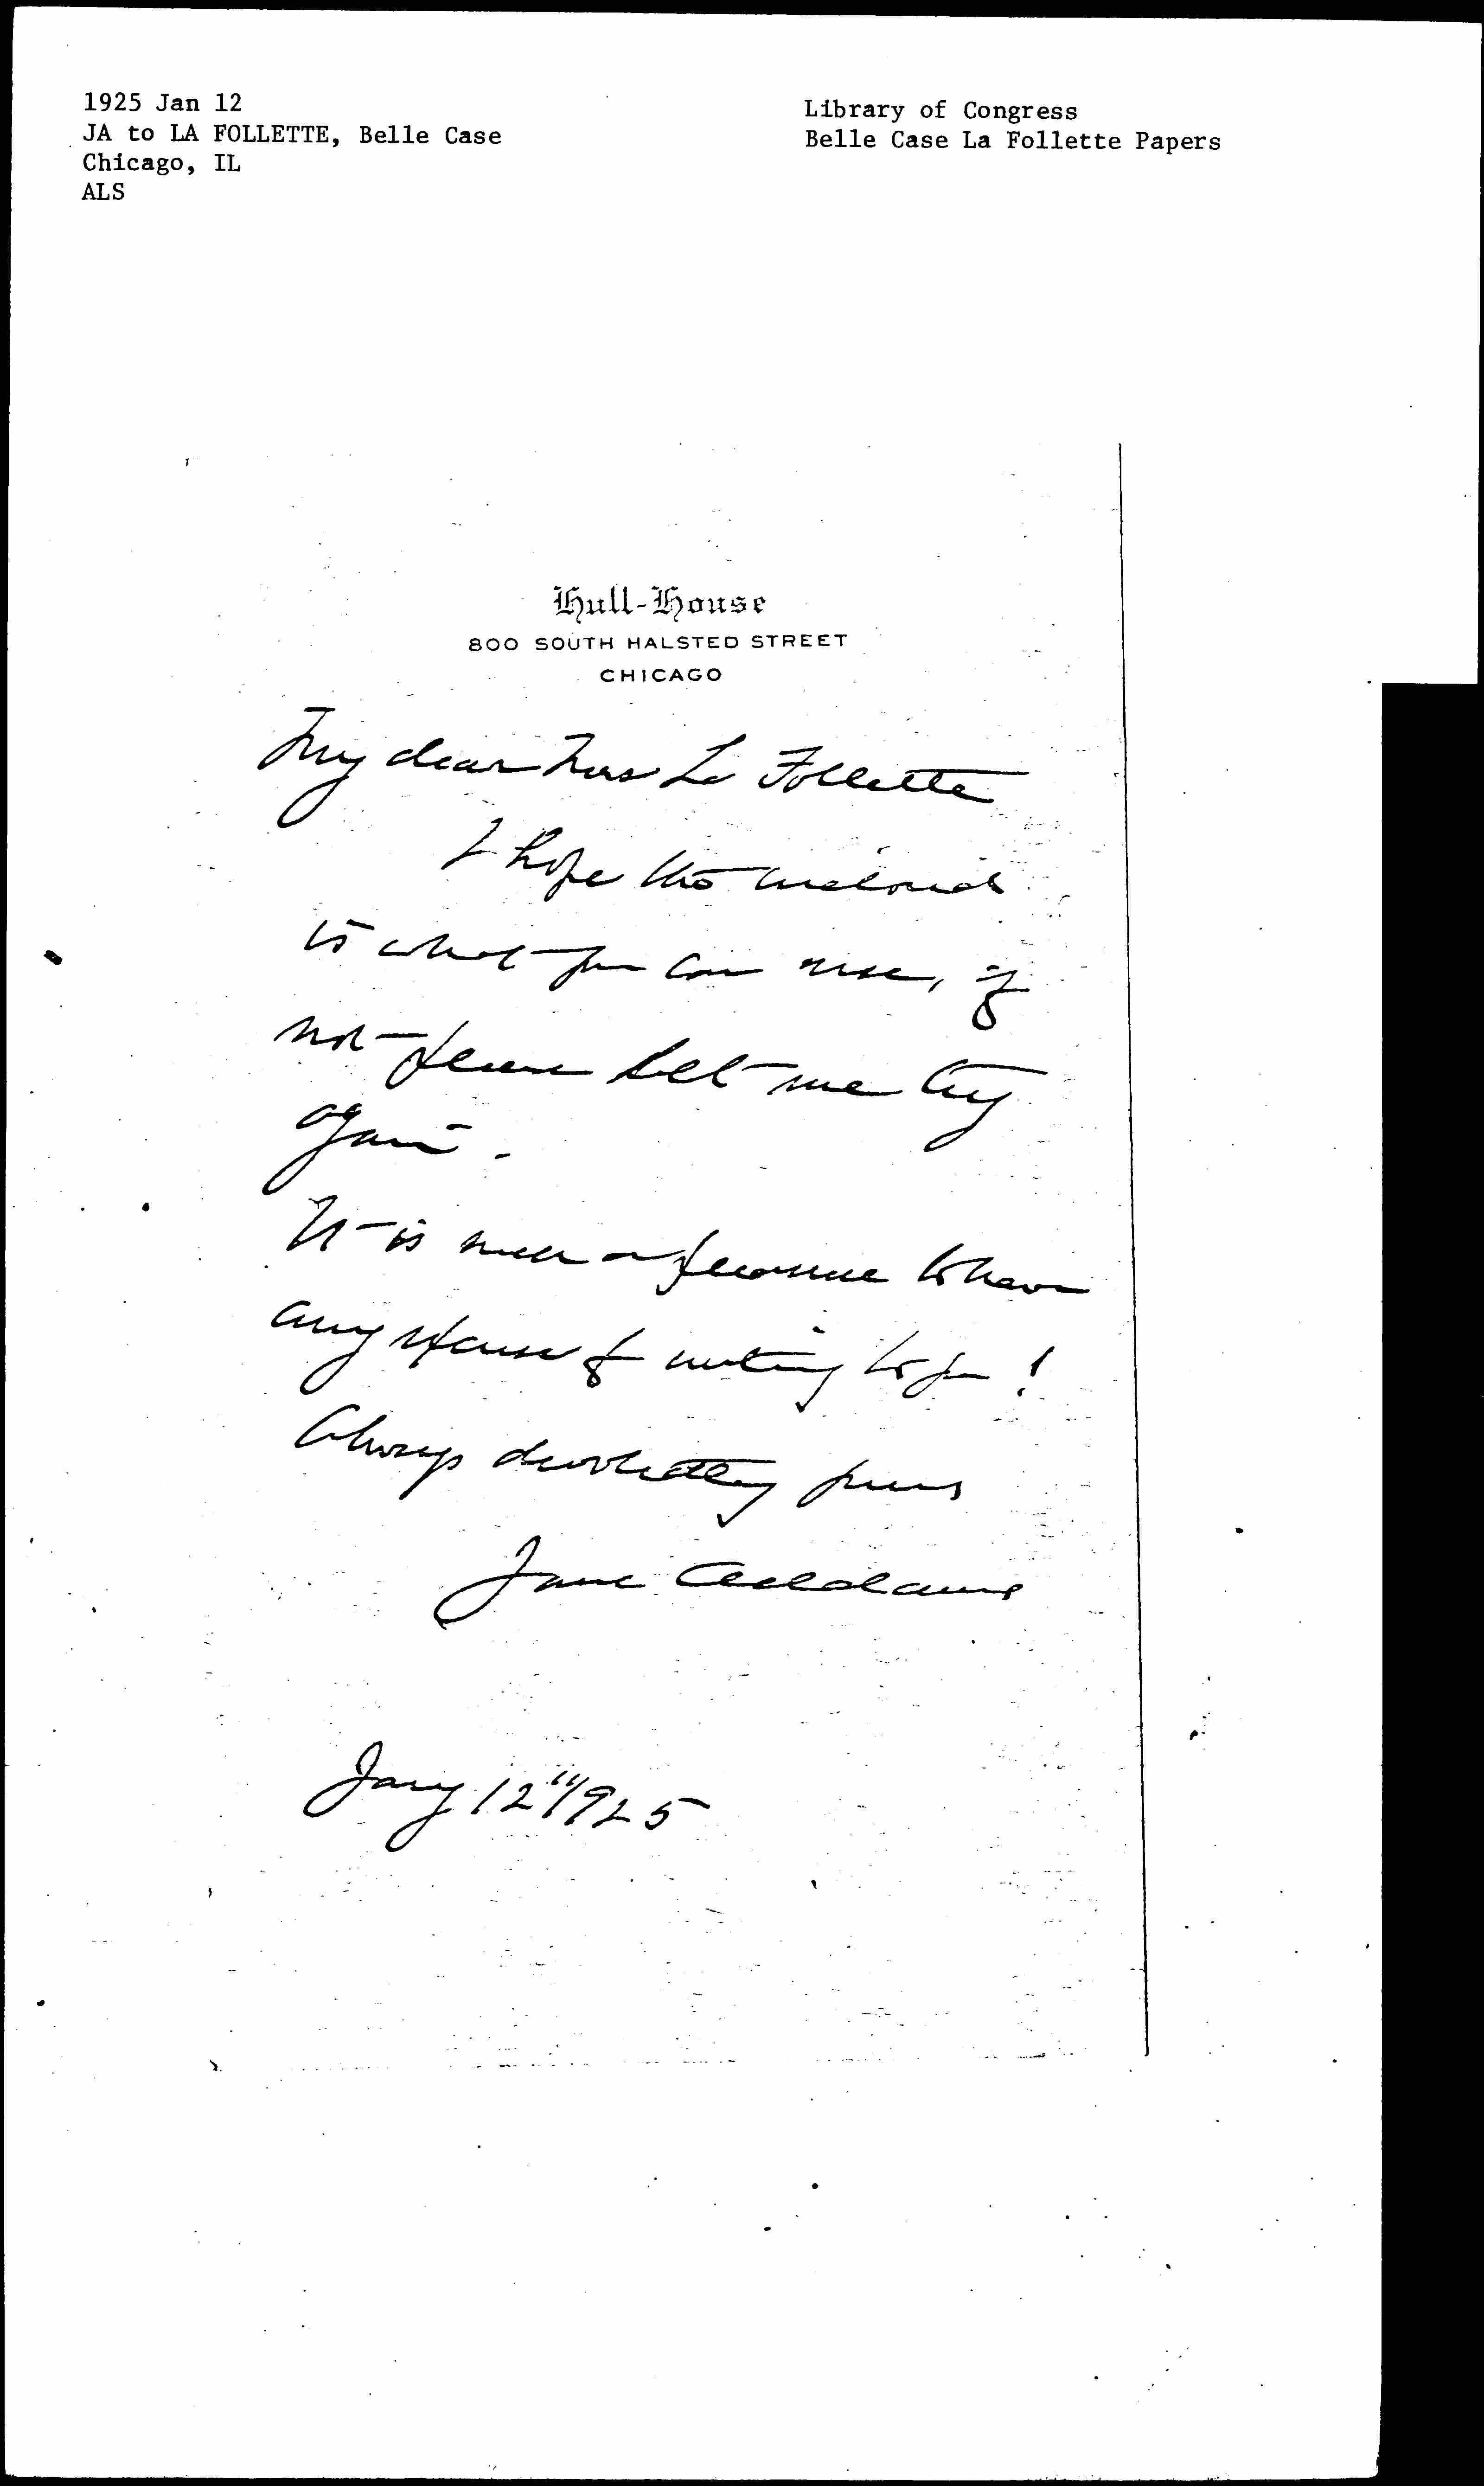 1925 Jan 12
JA to LA FOLLETTE, Belle Case
Chicago, IL
ALS
Library of Congress
Belle Case La Follette Papers
Hull-House
800 SOUTH HALSTED STREET
CHICAGO
My dear Mrs La Follette
I hope the enclosed
is what you can use, if
not please let me try
again.
It is such a pleasure to have
any excuse for writing to you!
Always devotedly yours
Jane Addams
Jany 12" 1925